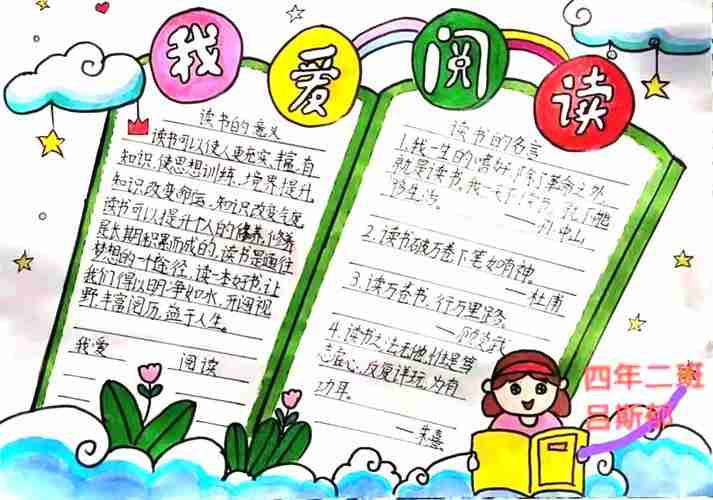 我爱阅读
读书的意义
读书可以使人更充实、丰富自
知识，使思想训练，境界提升。
知识改变命运，知识改变气质
读书可以提升个人的修养，修养
是长期积累而成的，读书是通往
梦想的一个途径，读一本好书，让
我们得以明净如水，开阔视
野，丰富阅历，益于人生。
我爱 阅读
读书的名言
1.我一生的嗜好，除了革命之外，
就是读书。我一天不读书，就不能
够生活。——孙中山
2.读书破万卷，下笔如有神。
——杜甫
3.读万卷书，行万里路。
——顾炎武
4.读书之法无他，惟是笃
志虚心，反复详玩，为有
功耳。
——朱熹
四年二班
吕斯郁